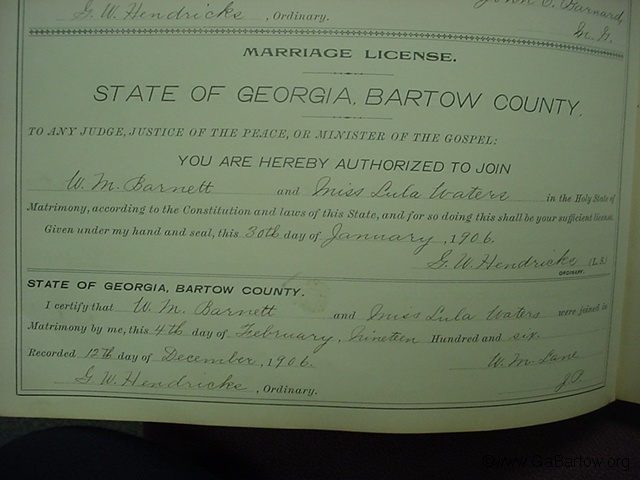 G. W. Hendricks, Ordinary.
John O. Barnard,
M. G.
MARRIAGE LICENSE.
STATE OF GEORGIA, BARTOW COUNTY.
TO ANY JUDGE, JUSTICE OF THE PEACE, OR MINISTER OF THE GOSPEL:
YOU ARE HEREBY AUTHORIZED TO JOIN
W. M. Barnett and Miss Lula Waters in the Holy State of
Matrimony, according to the Constitution and laws of this State, and for so doing this shall be your sufficient license.
Given under my hand and seal, this 30th day of January, 1906.
G. W. Hendricks (L.S.)
ORDINARY.
STATE OF GEORGIA, BARTOW COUNTY.
I certify that W. M. Barnett and Miss Lula Waters were joined in
Matrimony by me, this 4th day of February, Nineteen Hundred and six.
Recorded 12th day of December, 1906. W. M. Lane
G. W. Hendricks, Ordinary. J.P.
©www.GaBartow.org